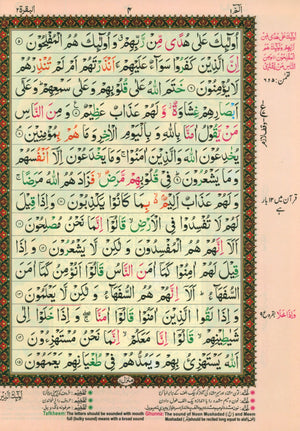 البقرة ٢
٤
الٓمّٓ ١
اُولٰٓئِكَ عَلٰى هُدًى مِّنْ رَّبِّهِمْ ۗ وَاُولٰٓئِكَ هُمُ الْمُفْلِحُوْنَ
اِنَّ الَّذِيْنَ كَفَرُوْا سَوَآءٌ عَلَيْهِمْ ءَاَنْذَرْتَهُمْ اَمْ لَمْ تُنْذِرْهُمْ
لَا يُؤْمِنُوْنَ خَتَمَ اللّٰهُ عَلٰى قُلُوْبِهِمْ وَعَلٰى سَمْعِهِمْ ؕ وَعَلٰٓى
اَبْصَارِهِمْ غِشَاوَةٌ وَّلَهُمْ عَذَابٌ عَظِيْمٌ وَمِنَ النَّاسِ
مَنْ يَّقُوْلُ اٰمَنَّا بِاللّٰهِ وَبِالْيَوْمِ الْاٰخِرِ وَمَا هُمْ بِمُؤْمِنِيْنَ
يُخٰدِعُوْنَ اللّٰهَ وَالَّذِيْنَ اٰمَنُوْا ۚ وَمَا يَخْدَعُوْنَ اِلَّآ اَنْفُسَهُمْ
وَمَا يَشْعُرُوْنَ فِيْ قُلُوْبِهِمْ مَّرَضٌ ۙ فَزَادَهُمُ اللّٰهُ مَرَضًا ۚ
وَلَهُمْ عَذَابٌ اَلِيْمٌۢ بِمَا كَانُوْا يَكْذِبُوْنَ وَاِذَا قِيْلَ
لَهُمْ لَا تُفْسِدُوْا فِى الْاَرْضِ ۙ قَالُوْٓا اِنَّمَا نَحْنُ مُصْلِحُوْنَ
اَلَآ اِنَّهُمْ هُمُ الْمُفْسِدُوْنَ وَلٰكِنْ لَّا يَشْعُرُوْنَ وَاِذَا
قِيْلَ لَهُمْ اٰمِنُوْا كَمَآ اٰمَنَ النَّاسُ قَالُوْٓا اَنُؤْمِنُ كَمَآ اٰمَنَ
السُّفَهَآءُ ؕ اَلَآ اِنَّهُمْ هُمُ السُّفَهَآءُ وَلٰكِنْ لَّا يَعْلَمُوْنَ
وَاِذَا لَقُوا الَّذِيْنَ اٰمَنُوْا قَالُوْٓا اٰمَنَّا ۖ وَاِذَا خَلَوْا اِلٰى
شَيٰطِيْنِهِمْ ۙ قَالُوْٓا اِنَّا مَعَكُمْ ۙ اِنَّمَا نَحْنُ مُسْتَهْزِءُوْنَ
اَللّٰهُ يَسْتَهْزِئُ بِهِمْ وَيَمُدُّهُمْ فِيْ طُغْيَانِهِمْ يَعْمَهُوْنَ
قرآن میں ١٢ بار
ہے
Tafkheem: The letters should be sounded with mouth
full (bulky sound) means with a broad sound
Ghunna: The sound of Noon Mushaddad
Mushaddad should be recited long equal to alif